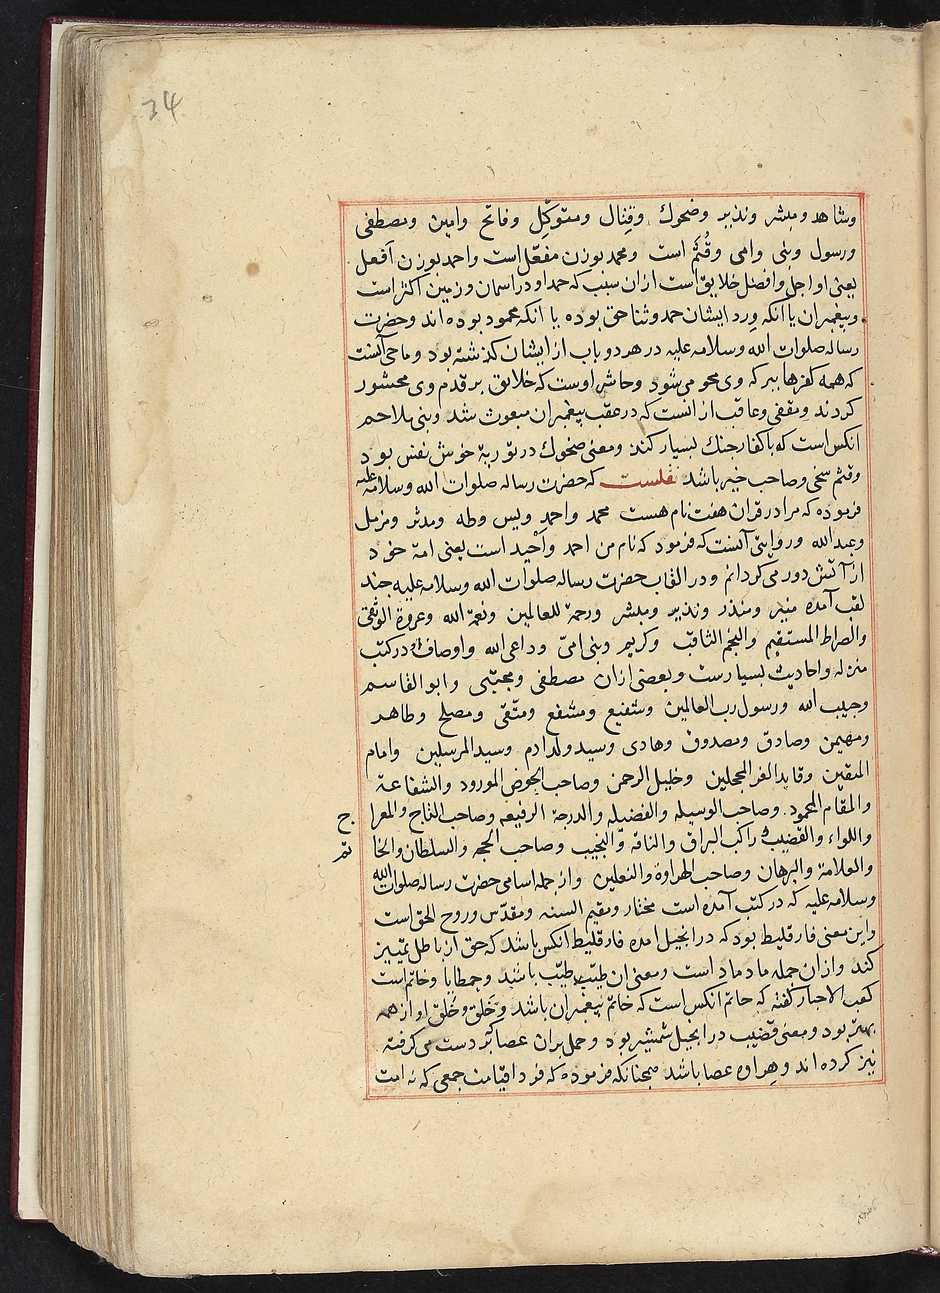 24
وشاهد ومبشر ونذير وضحوك وقتال ومتوكّل وفاتح وامين ومصطفى
ورسول ونبى وامى وقُثَم است ومحمد بوزن مفعّل است واحمد بوزن اَفعل
يعنى او اجل وافضل خلايق است ازان سبب كه حمد او در اسمان وزمين اكثر است
وپيغمبران يا انكه وِرد ايشان حمد وثنا حق بوده يا انكه محمود بوده اند وحضرت
رساله صلوات الله وسلامه عليه در هر دو باب از ايشان كذشته بود وماحى آنست
كه همه كفرها ببركه وى محو مى شود وحاشر اوست كه خلايق بر قدم وى محشور
كردند ومقفى وعاقب ازانست كه در عقب پيغمبران مبعوث شد ونبى ملاحم
انكس است كه باكفار جنك بسيار كند ومعنى ضحوك در توريه خوش نفس بود
وقثم سخى وصاحب خير باشد نقلست كه حضرت رساله صلوات الله وسلامه عليه
فرموده كه مرا در قران هفت نام هست محمد واحمد ويس وطه ومدثر ومزمل
وعبد الله وروايتى آنست كه فرمود كه نام من احمد واُحيد است يعنى امة خود
از آتش دور مى كردانم ودر القاب حضرت رساله صلوات الله وسلامه عليه چند
لقب آمده منير ومنذر ونذير ومبشر ورحمة للعالمين ونعمة الله وعروة الوثقى
والصراط المستقيم والنجم الثاقب وكريم ونبى امىّ وداعى الله واوصاف او در كتب
منزله واحاديث بسيارست وبعضى ازان مصطفى ومجتبى وابو القاسم
وحبيب الله ورسول رب العالمين وشفيع ومشفع ومتّقى ومصلح وطاهر
ومهيمن وصادق ومصدوق وهادى وسيد ولد ادم وسيد المرسلين وامام
المتقين وقايد الغر المحجلين وخليل الرحمن وصاحب الحوض المورود والشفاعة
والمقام المحمود وصاحب الوسيله والفضيله والدرجة الرفيعه وصاحب التاج والمعرا
ج
واللواء والقضيب وراكب البراق والناقه والنجيب وصاحب الحجه والسلطان والخا
تم
والعلامة والبرهان وصاحب الهراوة والنعلين واز جمله اسامى حضرت رساله صلوات الله
وسلامه عليه كه در كتب آمده است مختار ومقيم السنه ومقدّس وروح الحق است
واين معنى فارقليط بود كه در انجيل امده فارقليط آنكس باشد كه حق از باطل تمييز
كند وازان جمله ماد ماد است ومعنى ان طيّب طيّب باشد وحمطايا وخاتم است
كعب الاحبار كفته كه خاتم انكس است كه خاتم پيغمبران باشد وخَلق وخُلق او از همه
بهتر بود ومعنى قضيب در انجيل شمشير بود وحمل بران عصا كه بر دست مى كرفته
نيز كرده اند وهراوه عصا باشد همچنانكه فرموده كه فردا قيامت جمعى كه نه امت